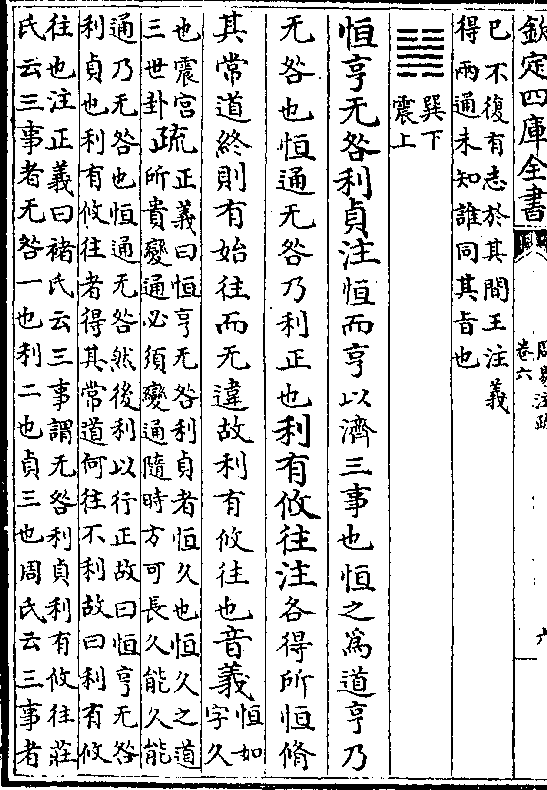 欽定四庫全書
周易注疏
卷六
已不復有志於其間王注義
得兩通未知誰同其旨也
䷟
巽下
震上
恒亨无咎利貞注恒而亨以濟三事也恒之爲道亨乃
无咎也恒通无咎乃利正也利有攸往注各得所恒脩
其常道終則有始往而无違故利有攸往也音義恒如
字久
也震宮
三世卦
疏
正義曰恒亨无咎利貞者恒久也恒久之道
所貴變通必須變通隨時方可長久能久能
通乃无咎也恒通无咎然後利以行正故曰恒亨无咎
利貞也利有攸往者得其常道何往不利故曰利有攸
往也注正義曰褚氏云三事謂无咎利貞利有攸往莊
氏云三事者无咎一也利二也貞三也周氏云三事者